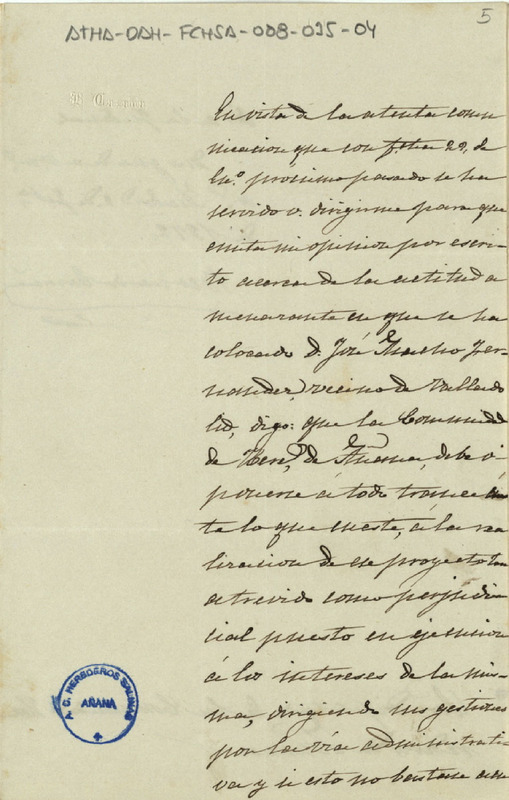 5
ATHA-DAH-FCHSA-008-095-04
En vista de la atenta comu-
nicacion que con fcha 29, de
En.º próximo pasado se ha
servido v. dirigirme para que
emita mi opinion por escri-
to acerca de la actitud a
menazante en que se ha
colocado D. José Macho Fer-
nandez, vecino de Vallado
lid, digo: que la Comunidad
de Hered.s de Añana, debe o
ponerse á todo trance
lo que cueste, á la rea
lizacion de ese proyecto tan
atrevido como perjudi
cial puesto en ejecucion
á los intereses de la mis-
ma, dirigiendo sus gestiones
por la via administrati-
va y si esto no bastase
A. C. HEREDEROS SALINAS
AÑANA